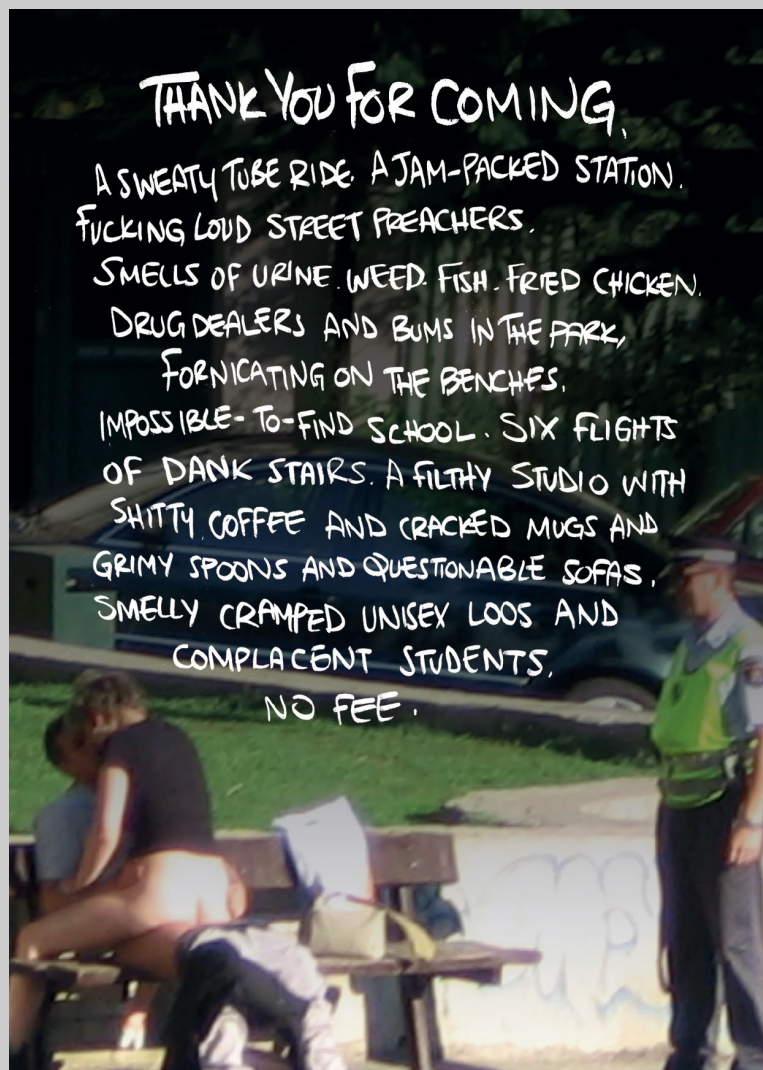 THANK YOU FOR COMING.
A SWEATY TUBE RIDE. A JAM-PACKED STATION.
FUCKING LOUD STREET PREACHERS.
SMELLS OF URINE. WEED. FISH. FRIED CHICKEN.
DRUG DEALERS AND BUMS IN THE PARK,
FORNICATING ON THE BENCHES.
IMPOSSIBLE-TO-FIND SCHOOL. SIX FLIGHTS
OF DANK STAIRS. A FILTHY STUDIO WITH
SHITTY COFFEE AND CRACKED MUGS AND
GRIMY SPOONS AND QUESTIONABLE SOFAS.
SMELLY CRAMPED UNISEX LOOS AND
COMPLACENT STUDENTS.
NO FEE.